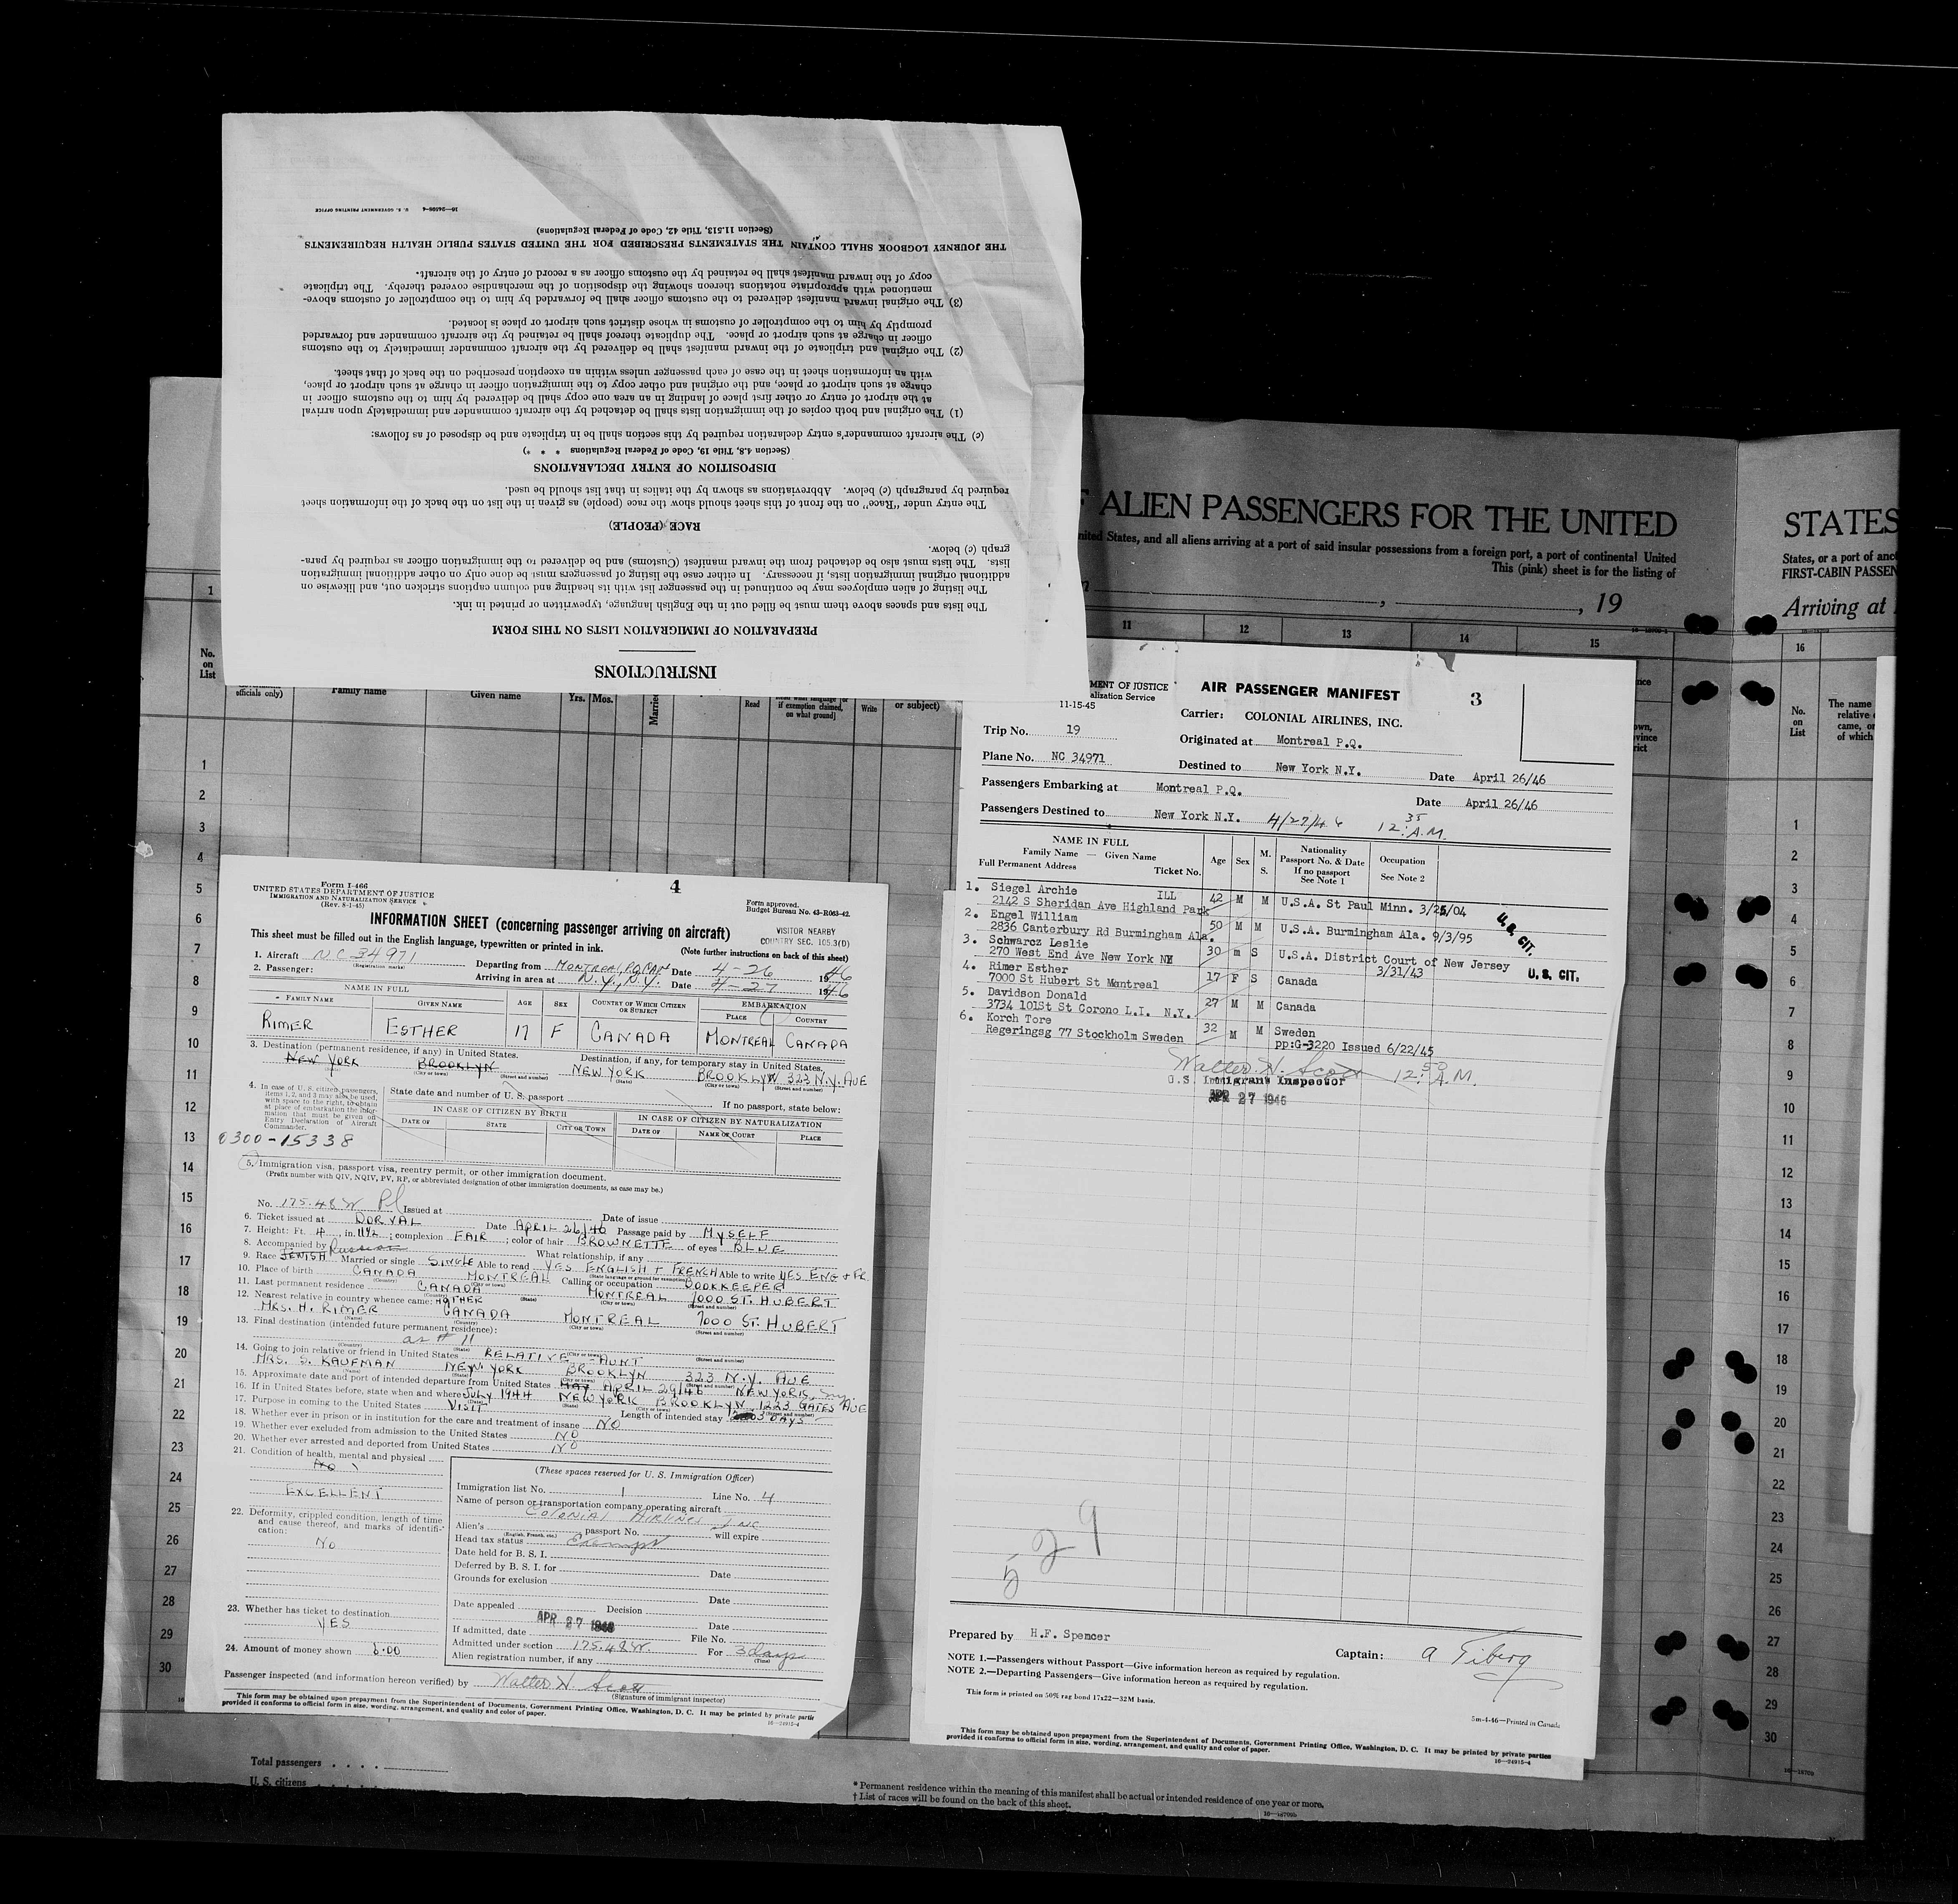 INSTRUCTIONS
PREPARATION OF IMMIGRATION LISTS ON THIS FORM
The lists and spaces above them must be filled out in the English language, typewritten or printed in ink.
The listing of alien employees may be continued in the passenger list with its heading and column captions stricken out, and likewise on
additional original immigration lists, if necessary. In either case the listing of passengers must be done only on other additional immigration
lists. The lists must also be detached from the inward manifest (Customs) and be delivered to the immigration officer as required by para-
graph (c) below.
RACE (PEOPLE)
The entry under "Race" on the front of this sheet should show the race (people) as given in the list on the back of the information sheet
required by paragraph (c) below. Abbreviations as shown by the italics in that list should be used.
DISPOSITION OF ENTRY DECLARATIONS
(Section 4.8, Title 19, Code of Federal Regulations * * *)
(c) The aircraft commander's entry declaration required by this section shall be in triplicate and be disposed of as follows:
(1) The original and both copies of the immigration lists shall be detached by the aircraft commander and immediately upon arrival
at the airport of entry or other first place of landing in an area one copy shall be delivered by him to the customs officer in
charge at such airport or place, and the original and other copy to the immigration officer in charge at such airport or place,
with an information sheet in the case of each passenger unless within an exception prescribed on the back of that sheet.
(2) The original and triplicate of the inward manifest shall be delivered by the aircraft commander immediately to the customs
officer in charge at such airport or place. The duplicate thereof shall be retained by the aircraft commander and forwarded
promptly by him to the comptroller of customs in whose district such airport or place is located.
(3) The original inward manifest delivered to the customs officer shall be forwarded by him to the comptroller of customs above-
mentioned with appropriate notations thereon showing the disposition of the merchandise covered thereby. The triplicate
copy of the inward manifest shall be retained by the customs officer as a record of entry of the aircraft.
THE JOURNEY LOGBOOK SHALL CONTAIN THE STATEMENTS PRESCRIBED FOR THE UNITED STATES PUBLIC HEALTH REQUIREMENTS
(Section 11.513, Title 42, Code of Federal Regulations)
16—24598-4 U. S. GOVERNMENT PRINTING OFFICE
ALIEN PASSENGERS FOR THE UNITED
STATES
nited States, and all aliens arriving at a port of said insular possessions from a foreign port, a port of continental United
This (pink) sheet is for the listing of
, 19
States, or a port of
FIRST-CABIN PASSEN
Arriving at
1 11 12 13 14 15 16
No. on List
officials only) Family name Given name Yrs. Mos. Married Read if exemption claimed, on what ground] Write or subject)
No. on List The name relative came, or of which
1
2
3
4
5
6
7
8
9
10
11
12
13
14
15
16
17
18
19
20
21
22
23
24
25
26
27
28
29
30
Total passengers . . . .
U. S. citizens
* Permanent residence within the meaning of this manifest shall be actual or intended residence of one year or more.
† List of races will be found on the back of this sheet.
1
2
3
4
5
6
7
8
9
10
11
12
13
14
15
16
17
18
19
20
21
22
23
24
25
26
27
28
29
30
4
Form I-466
UNITED STATES DEPARTMENT OF JUSTICE
IMMIGRATION AND NATURALIZATION SERVICE
(Rev. 8-1-45)
Form approved.
Budget Bureau No. 43-R063-42.
INFORMATION SHEET (concerning passenger arriving on aircraft)
VISITOR NEARBY
COUNTRY SEC. 105.3(D)
This sheet must be filled out in the English language, typewritten or printed in ink.
(Note further instructions on back of this sheet)
1. Aircraft NC34971 Departing from MONTREAL, P.Q. CAN Date 4-26 1946
(Registration marks)
2. Passenger: Arriving in area at N.Y., N.Y. Date 4-27 1946
NAME IN FULL
FAMILY NAME GIVEN NAME AGE SEX COUNTRY OF WHICH CITIZEN OR SUBJECT EMBARKATION PLACE COUNTRY
RIMER ESTHER 17 F CANADA MONTREAL CANADA
3. Destination (permanent residence, if any) in United States. Destination, if any, for temporary stay in United States.
NEW YORK BROOKLYN NEW YORK BROOKLYN 323 N.Y. AVE
(City or town) (Street and number) (State) (City or town) (Street and number)
4. In case of U. S. citizen passengers, items 1, 2, and 3 may also be used, with space to the right, to obtain at place of embarkation the information that must be given on Entry Declaration of Aircraft Commander.
State date and number of U. S. passport If no passport, state below:
IN CASE OF CITIZEN BY BIRTH IN CASE OF CITIZEN BY NATURALIZATION
DATE OF STATE CITY OR TOWN DATE OF NAME OF COURT PLACE
0300-15338
5. Immigration visa, passport visa, reentry permit, or other immigration document.
(Prefix number with QIV, NQIV, PV, RP, or abbreviated designation of other immigration documents, as case may be.)
No. 175.48 Issued at Date of issue
6. Ticket issued at DORVAL Date APRIL 26/46 Passage paid by MYSELF
7. Height: Ft. 4, in. 11½; complexion FAIR; color of hair BROWNETTE of eyes BLUE
8. Accompanied by What relationship, if any
9. Race JEWISH Russian Married or single SINGLE Able to read YES ENGLISH + FRENCH Able to write YES ENG + FR.
10. Place of birth CANADA MONTREAL Calling or occupation BOOKKEEPER
11. Last permanent residence CANADA MONTREAL 7000 ST. HUBERT
12. Nearest relative in country whence came: MOTHER
MRS. H. RIMER CANADA MONTREAL 7000 ST. HUBERT
13. Final destination (intended future permanent residence):
as # 11
14. Going to join relative or friend in United States RELATIVE - AUNT
MRS. S. KAUFMAN NEW YORK BROOKLYN 323 N.Y. AVE
15. Approximate date and port of intended departure from United States MAY APRIL 29/46 NEW YORK,
16. If in United States before, state when and where JULY 1944 NEW YORK BROOKLYN 1223 GATES AVE
17. Purpose in coming to the United States VISIT Length of intended stay 3 DAYS
18. Whether ever in prison or in institution for the care and treatment of insane NO
19. Whether ever excluded from admission to the United States NO
20. Whether ever arrested and deported from United States NO
21. Condition of health, mental and physical
NO
EXCELLENT
22. Deformity, crippled condition, length of time and cause thereof, and marks of identification:
NO
23. Whether has ticket to destination
YES
24. Amount of money shown
(These spaces reserved for U. S. Immigration Officer)
Immigration list No. 1 Line No. 4
Name of person or transportation company operating aircraft
Colonial Airlines Inc
Alien's passport No. will expire
(English, French, etc.)
Head tax status Exempt
Date held for B. S. I.
Deferred by B. S. I. for Date
Grounds for exclusion
Date
Date appealed Decision
APR 27 1946 Date
If admitted, date File No.
Admitted under section 175.48 For 3 days
(Time)
Alien registration number, if any
Passenger inspected (and information hereon verified) by Walter H. Scott
(Signature of immigrant inspector)
This form may be obtained upon prepayment from the Superintendent of Documents, Government Printing Office, Washington, D. C. It may be printed by private partie
provided it conforms to official form in size, wording, arrangement, and quality and color of paper.
16—24915-4
MENT OF JUSTICE
alization Service
11-15-45
AIR PASSENGER MANIFEST
3
Carrier: COLONIAL AIRLINES, INC.
Trip No. 19 Originated at Montreal P.Q.
Plane No. NC 34971 Destined to New York N.Y. Date April 26/46
Passengers Embarking at Montreal P.Q. Date April 26/46
Passengers Destined to New York N.Y. 4/27/46 12:35 A.M.
NAME IN FULL
Family Name — Given Name
Full Permanent Address Ticket No.
Age Sex M. S. Nationality Passport No. & Date If no passport See Note 1 Occupation See Note 2
1. Siegel Archie ILL 42 M M U.S.A. St Paul Minn. 3/25/04
2142 S Sheridan Ave Highland Park
2. Engel William 50 M M U.S.A. Burmingham Ala. 9/3/95
2836 Canterbury Rd Burmingham Ala.
U.S. CIT.
3. Schwarcz Leslie 30 m S U.S.A. District Court of New Jersey
270 West End Ave New York NY 3/31/43
U.S. CIT.
4. Rimer Esther 17 F S Canada
7000 St Hubert St Montreal
5. Davidson Donald 27 M M Canada
3734 101St St Corono L.I. N.Y.
6. Korch Tore 32 M M Sweden
Regeringsg 77 Stockholm Sweden pp:G-3220 Issued 6/22/45
Walter H. Scott 12:50 A.M.
U.S. Immigrant Inspector
APR 27 1946
5 29
Prepared by H.F. Spencer
Captain: A Tiberg
NOTE 1.—Passengers without Passport—Give information hereon as required by regulation.
NOTE 2.—Departing Passengers—Give information hereon as required by regulation.
This form is printed on 50% rag bond 17x22—32M basis.
5m-4-46—Printed in Canada
This form may be obtained upon prepayment from the Superintendent of Documents, Government Printing Office, Washington, D. C. It may be printed by private parties
provided it conforms to official form in size, wording, arrangement, and quality and color of paper.
16—24915-4